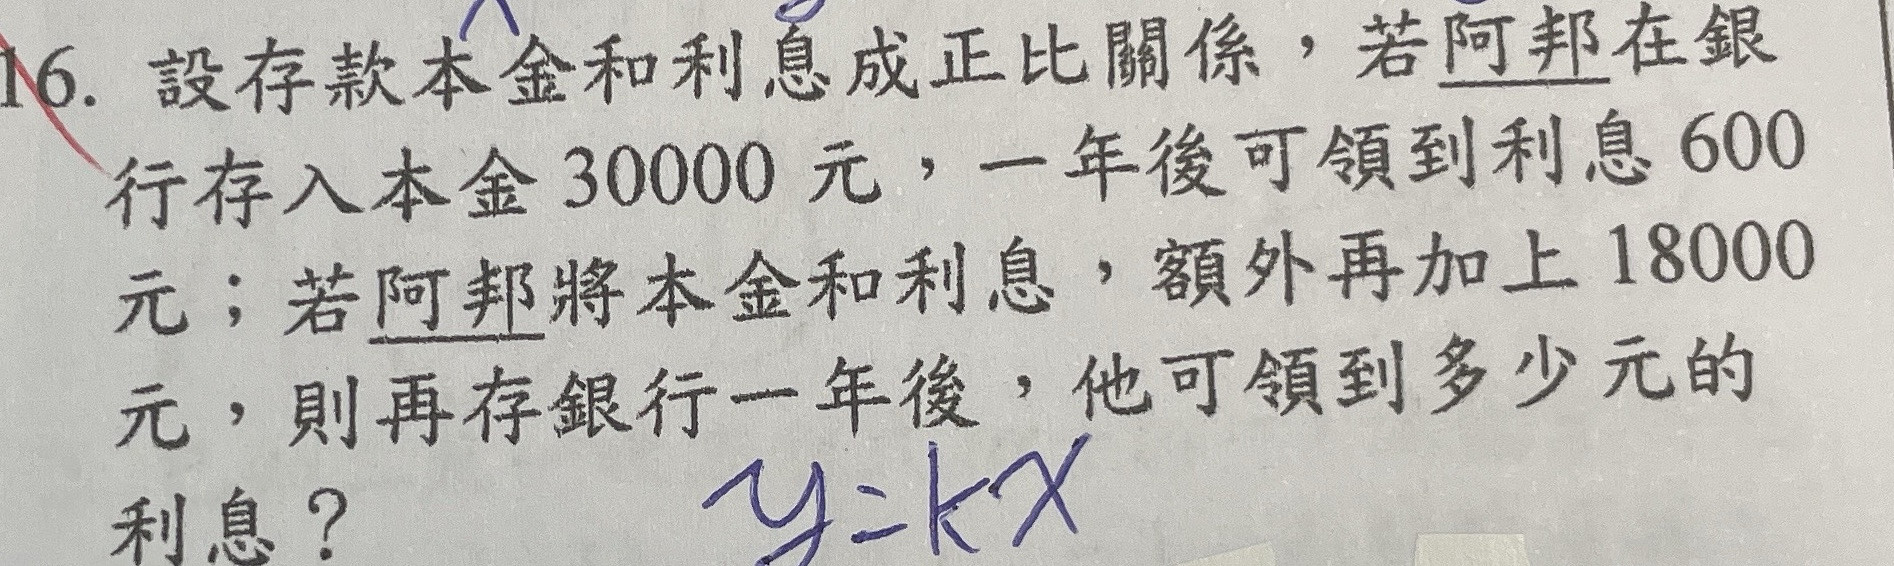 16. 設存款本金和利息成正比關係，若阿邦在銀
行存入本金 30000 元，一年後可領到利息 600
元；若阿邦將本金和利息，額外再加上 18000
元，則再存銀行一年後，他可領到多少元的
利息？
y=kx